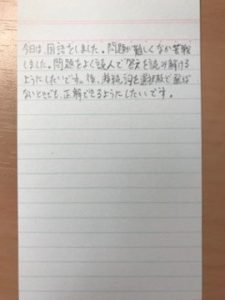 今日は、国語をしました。問題が難しくなか苦戦
しました。問題をよく読んで答えを読み解ける
ようにしたいです。後、接続詞を選択肢で選ば
ないときでも、正解できるようにしたいです。